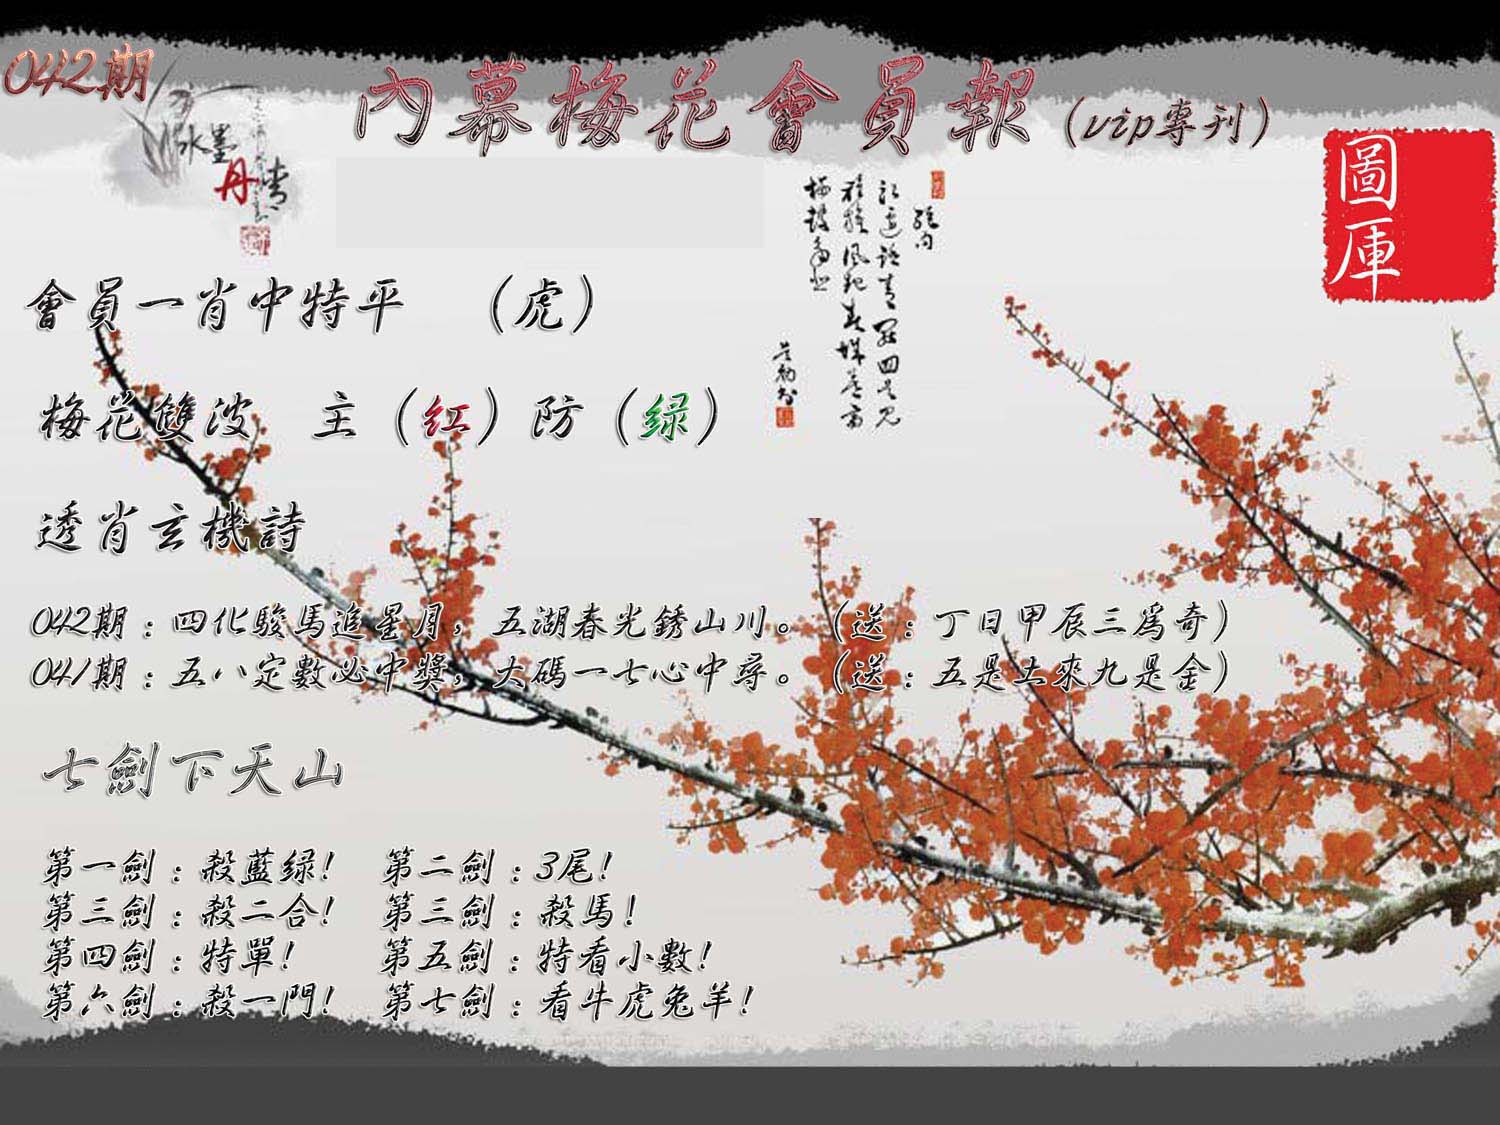 042期
內幕梅花會員報（vip專刊）
水墨
丹青
圖庫
會員一肖中特平 （虎）
梅花雙波 主（红）防（绿）
透肖玄機詩
042期：四化駿馬追星月，五湖春光銹山川。（送：丁日甲辰三爲奇）
041期：五八定數必中獎，大碼一七心中尋。（送：五是土來九是金）
七劍下天山
第一劍：殺藍绿！ 第二劍：3尾！
第三劍：殺二合！ 第三劍：殺馬！
第四劍：特單！ 第五劍：特看小數！
第六劍：殺一門！ 第七劍：看牛虎兔羊！